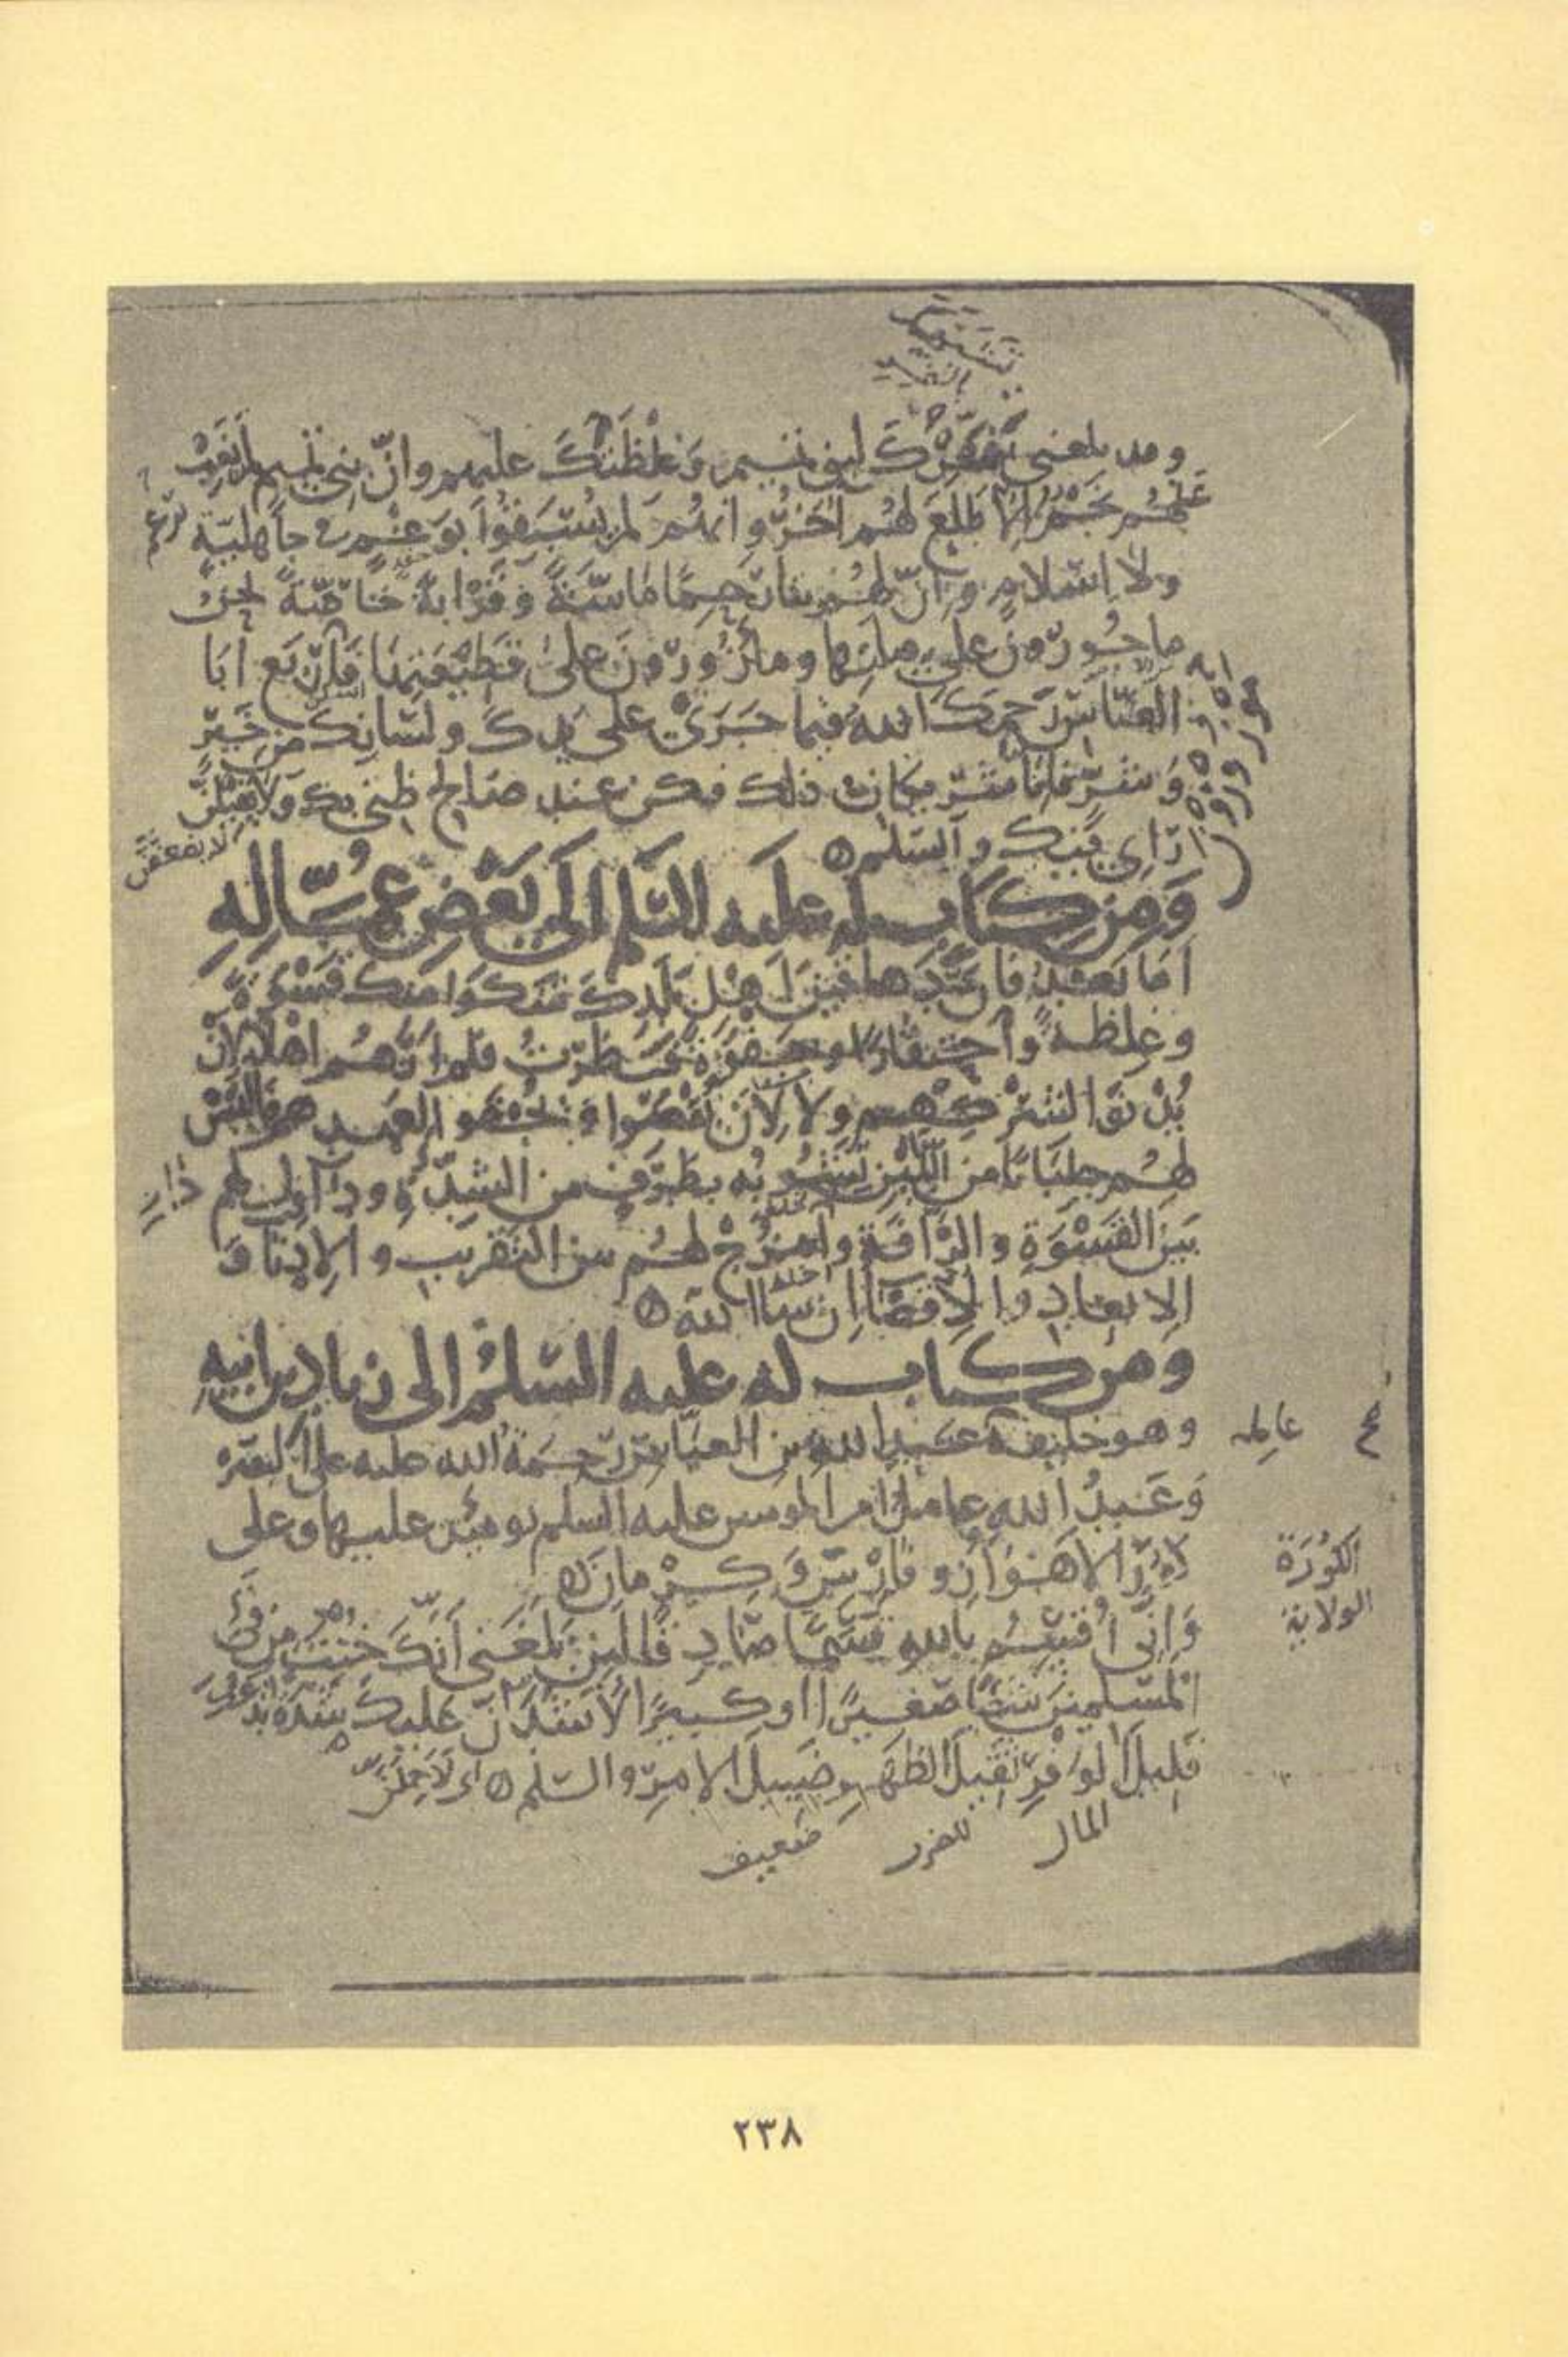 وقد بلغنى تنمرك لبنى تميم وغلظتك عليهم وانّ بنى تميم لم يغب
عنهم نجم الا طلع لهم اخر وانهم لم يسبقوا بوغم فى جاهلية
ولا اسلام وانّ لهم بنا رحما ماسّة وقرابة خاصّة نحن
ماجورون على صلتها ومازورون على قطيعتها فاربع ابا
العباس رحمك الله فيما جرى على يدك ولسانك من خير
وشر فانا شريكان فى ذلك وكن عند صالح ظنى بك ولا يفيلنّ
راى فيك والسلم
ومن كتاب له عليه السلم الى بعض عماله
اما بعد فان دهاقين اهل بلدك شكوا منك قسوة
وغلظة واحتقارا وجفوة فنظرت فلم ارهم اهلا لان
يدنوا لشركهم ولا لان يقصوا ويجفوا لعهدهم فالبس
لهم جلبابا من اللين تشوبه بطرف من الشدة وداول لهم
بين القسوة والرأفة وامزج لهم بين التقريب والادناء و
الابعاد والاقصا ان شا الله
ومن كتاب له عليه السلم الى زياد بن ابيه
وهو خليفة عبد الله بن العباس رحمة الله عليه على البصرة
عامله
وعبد الله عامل امير المومنين عليه السلم يومئذ عليها وعلى
كور الاهواز وفارس وكرمان
الكورة
الولاية
وانى اقسم بالله قسما صادقا لين بلغنى انك خنت من فى
المسلمين شيا صغيرا او كبيرا لاشدن عليك شدة تدعك
قليل الوفر ثقيل الظهر ضييل الامر والسلم
المال
ضعيف
٢٣٨